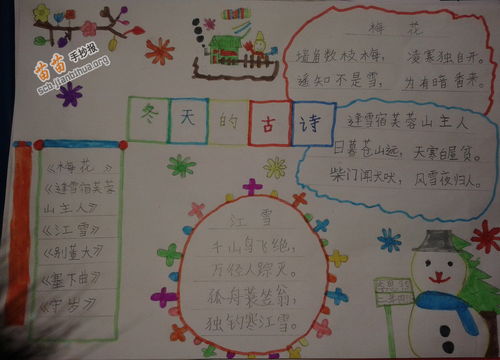 苗苗手抄报
scb.jianbihua.org
梅 花
墙角数枝梅， 凌寒独自开。
遥知不是雪， 为有暗香来。
冬天的古诗
逢雪宿芙蓉山主人
日暮苍山远，天寒白屋贫。
柴门闻犬吠，风雪夜归人。
《梅花》
《逢雪宿芙蓉
山主人》
《江雪》
《别董大》
《塞下曲》
《守岁》
江 雪
千山鸟飞绝，
万径人踪灭。
孤舟蓑笠翁，
独钓寒江雪。